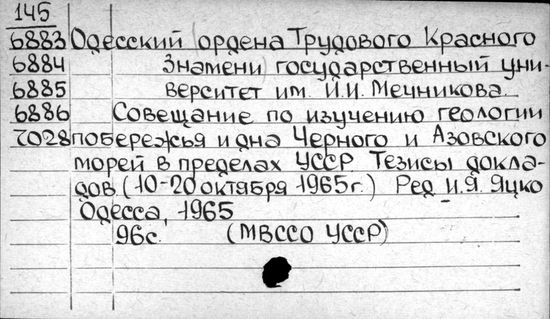 145
6883 Одесский ордена Трудового Красного
6884 Знамени государственный уни-
6885 верситет им. И.И. Мечникова.
6886 Совещание по изучению геологии
7028 побережья и дна Черного и Азовского
морей в пределах УССР. Тезисы докла-
дов (10-20 октября 1965г.) Ред. И.Я. Яцко
Одесса, 1965
96с. (МВССО УССР)